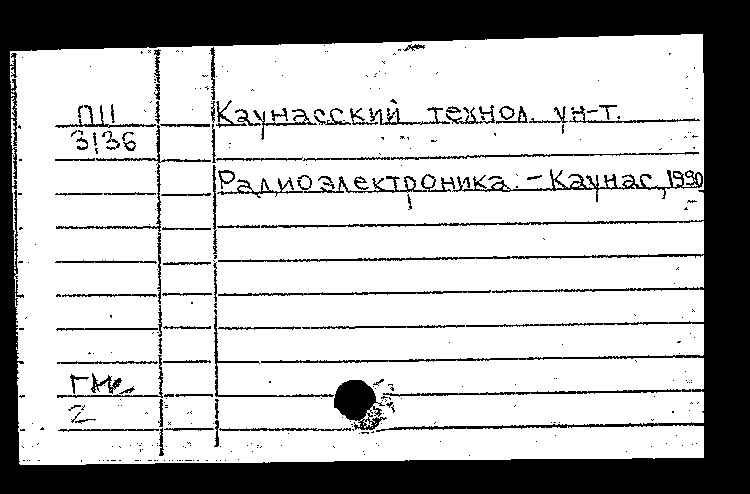 П11
3136
Каунасский технол. ун-т.
Радиоэлектроника. - Каунас, 1990
2